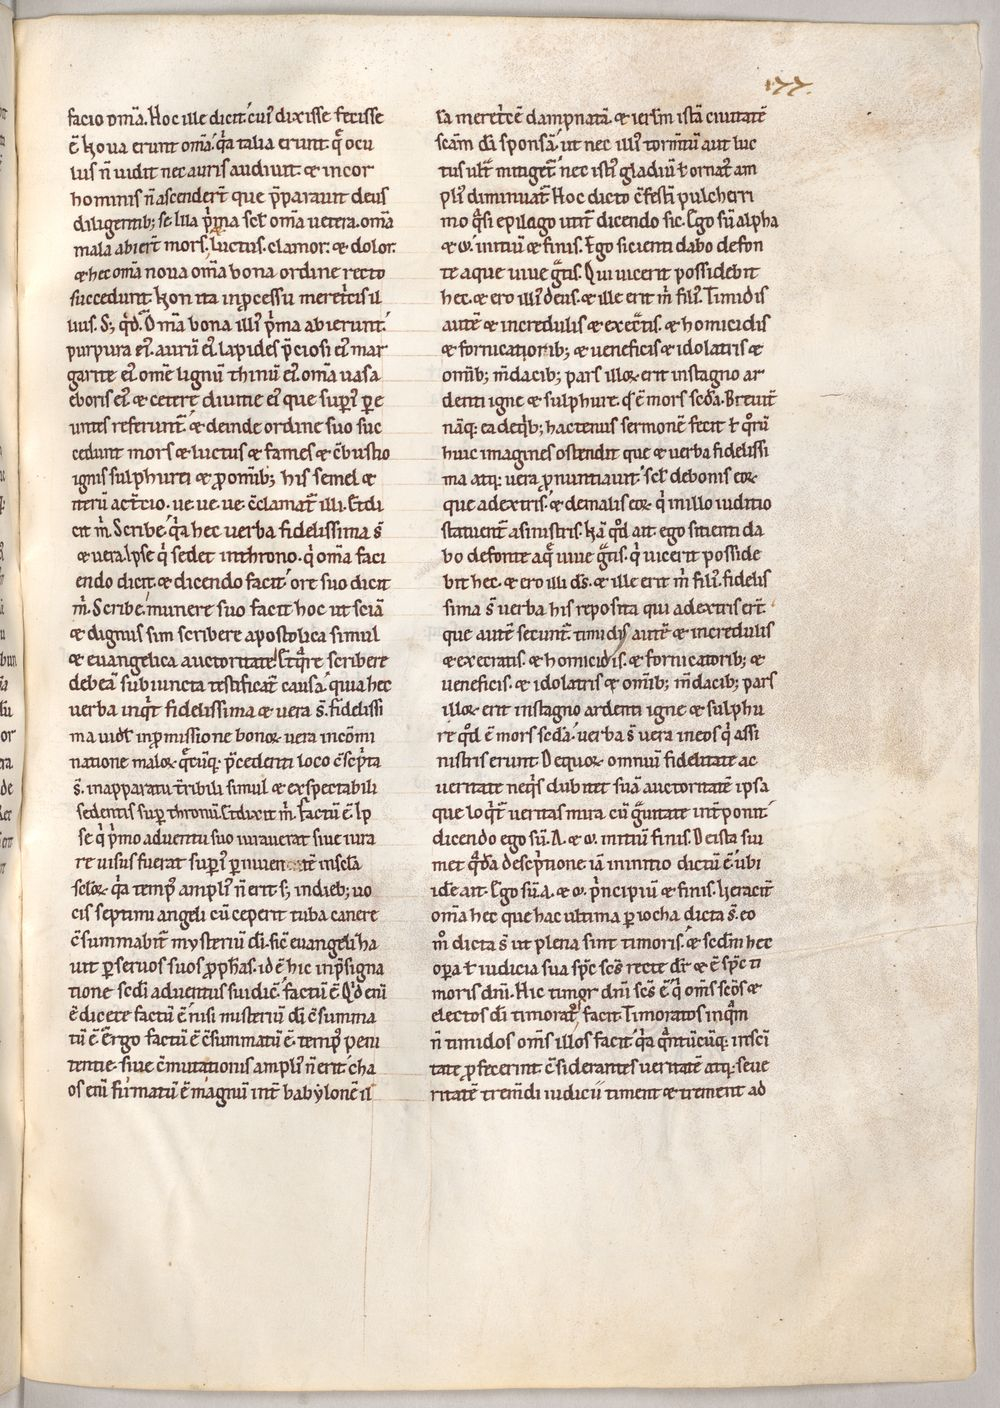 177.
facio om̅a. Hoc ille dicit cui᷒ dixisse fecisse
ē Nova erunt om̅a. q̇a talia erunt q̄ ocu
lus n̄ vidit nec auris audivit. & in cor
hominis n̄ ascender̄t que p̄paravit deus
diligentib; se. Illa ṗma scl̄ om̅a vetera. om̅a
mala abier̄t mors. luctus. clamor. & dolor.
& hec om̅a nova om̅a bona ordine recto
succedunt. Non ita in p̱cessu mereṫcis il
lius. S; q̇d. Om̅a bona illi᷒ ṗma abierunt.
purpura ei᷒. aurū ei᷒. lapides p̄ciosi ei᷒. mar
garite ei᷒. om̅e lignū thinū ei᷒. om̅a vasa
eboris ei᷒. & ceter̄e divitie ei᷒ que sup̱i᷒ p̱ e
untes referunt̄. & deinde ordine suo suc
cedunt mors & luctus & fames & c̄bustio
ignis sulphurei & p̱ om̅ib; his semel &
iterū act̄cio. ve. ve. ve. c̄clamat̄ illi. Et di
cit ṁ. Scribe. q̇a hec verba fidelissima s̄
& vera. Ipse q̇ sedet in throno. q̇ om̅a faci
endo dicit. & dicendo facit. ore suo dicit
ṁ. Scribe. munere suo facit hoc ut sciā
& dignus sim scribere apostolica simul
& evangelica auctoritate. Et q̄re scribere
debeā subiuncta testificat̄ causā. quia hec
verba inq̇t fidelissima & vera s̄. fidelissi
ma vidl̄ in p̱missione bonoꝝ. vera in cōmi
natione maloꝝ. q̄cūq; p̄cedenti loco c̄sc̄pta
s̄. in apparatu t̄ribili simul & exspectabili
sedentis sup̱ thronū. Et dixit ṁ. factū ē. Ip
se q̇ ṗmo adventu suo iuraverat sive iura
re visus fuerat sup̱i᷒ p̱ in scl̄a
scl̄oꝝ. q̇a temp᷒ ampli᷒ n̄ erit s; in dieb; vo
cis septimi angeli cū ceperit tuba canere
c̄summabit̄ mysteriū dī. sic̄ evangeliza
vit p̱ servos suos p̱ph̄as. id ē hic in p̄signa
tione sc̄di adventus sui dic̄. factū ē. Q̇d enī
ē dicere factū ē. nisi misteriū dī c̄summa
tū ē. Ergo factū ē c̄summatū ē. temp᷒ peni
tentie. sive c̄mutationis ampli᷒ n̄ erit. cha
os enī firmatū ē magnū int̄ babylonē il
la mereṫcē dampnatā. & ier̄lm istā civitatē
sc̄am dī sponsā. ut nec illi᷒ torm̄tū aut luc
tus ult̄ mitiget̄. nec isti᷒ gladiū ł ornat̄ am
pli᷒ diminuat̄. Hoc dicto c̄festī pulcherri
mo q̇si epilogo utit̄ dicendo sic. Ego sū alpha
& ω. initiū & finis. Ego sicienti dabo de fon
te aque vive ġtis. Qui vicerit possidebit
hec. & ero illi᷒ deus. & ille erit ṁ fili᷒. Timidis
autē & incredulis & execr̄tis. & homicidis
& fornicatorib; & veneficis & idolatris &
om̅ib; m̄dacib; pars illoꝝ erit in stagno ar
denti igne & sulphure. qd̄ ē mors sc̄da. Brevit̄
nāq; ea de q̇b; hactenus sermonē fecit ł qͦrū
huic imagines ostendit que & verba fidelissi
ma atq; vera p̱nuntiavit. scl̄ de bonis eoꝝ
que a dextris. & de malis eoꝝ q̇ in illo iuditio
statuent̄ a sinistris. Nā qͦd ait. ego sitienti da
bo de fonte aq̄ vive ġtis. q̇ vicerit posside
bit hec. & ero illi ds̄. & ille erit ṁ fili᷒. fidelis
sima s̄ verba his reposita qui a dextris er̄t.
que autē secunt̄. timidis autē & incredulis
& execratis. & homicidis. & fornicatorib; &
veneficis. & idolatris & om̅ib; m̄dacib; pars
illoꝝ erit in stagno ardenti igne & sulphu
re qͦd ē mors sc̄da. verba s̄ vera in eos q̇ a si
nistris erunt. De quoꝝ omniū fidelitate ac
veritate neq̇s dubitet suā auctoritatē ipsa
que loq̇t̄ veritas mira cū ġvitate int̄ponit
dicendo ego sū. A. & ω. initiū finis. De ista sui
met q̇dā desċptione iā in initio dictū ē. ubi
idē ait. Ego sū. A. & ω. ṗncipiū & finis. Veracit̄
om̅a hec que hac ultima p̱iocha dicta s̄. eo
m̊ dicta s̄ ut plena sint timoris. & sc̄dm hec
op̱a ł iudicia sua sp̄c sc̄s recte dr̄ & ē sp̄c ti
moris dn̄i. Hic timor dn̄i sc̄s ē. q̇ om̅s sc̄os &
electos dī timorat᷒ facit. Timoratos inq̄m
n̄ timidos om̅s illos facit. q̇a q̄ntūcūq; in sc̄i
tate p̱fecerint c̄siderantes veritatē atq; seve
ritatē trem̄di iudicii timent & trement ad